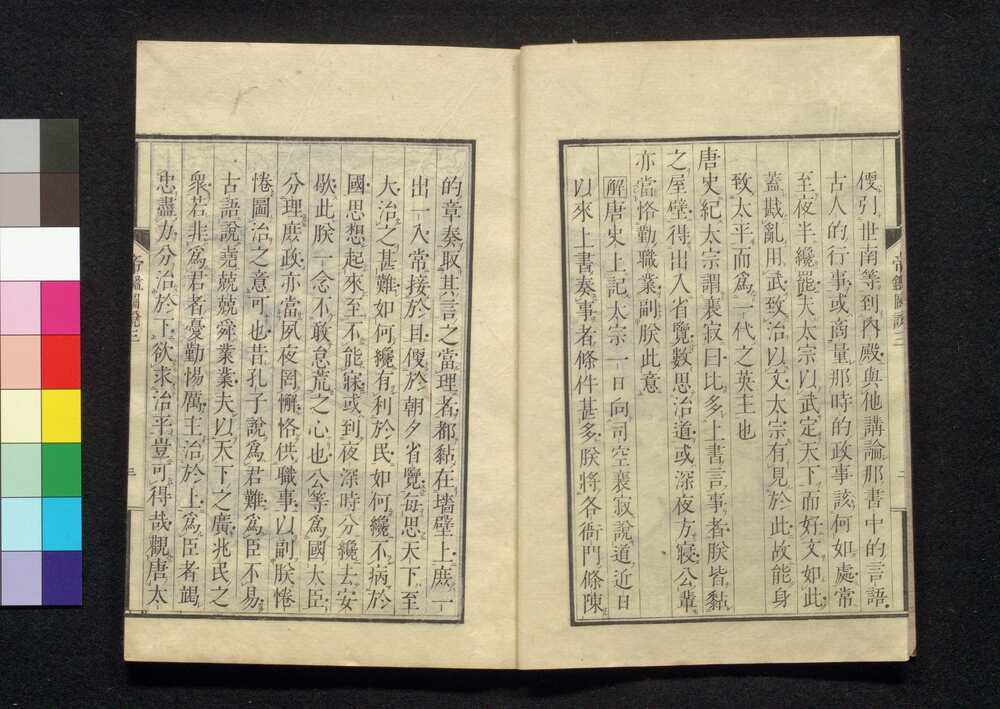 便引世南等到內殿與他講論那書中的言語
古人的行事或商量那時的政事該何如處常
至夜半纔罷夫太宗以武定天下而好文如此
蓋戡亂用武致治以文太宗有見於此故能身
致太平而爲一代之英主也
唐史紀太宗謂裵寂曰比多上書言事者朕皆黏
之屋壁得出入省覽數思治道或深夜方寢公輩
亦當恪勤職業副朕此意
解唐史上記太宗一日向司空裵寂說道近日
以來上書奏事者條件甚多朕將各衙門條陳
帝鑑圖說二
的章奏取其言之當理者都黏在墻壁上庶一
出一入常接於目便於朝夕省覽每思天下至
大治之甚難如何纔有利於民如何纔不病於
國思想起來至不能寐或到夜深時分纔去安
歇此朕一念不敢怠荒之心也公等爲國大臣
分理庶政亦當夙夜罔懈恪供職事以副朕惓
惓圖治之意可也昔孔子說爲君難爲臣不易
古語說堯兢兢舜業業夫以天下之廣兆民之
衆若非爲君者憂勤惕厲主治於上爲臣者竭
忠盡力分治於下欲求治平豈可得哉觀唐太
帝鑑圖說三